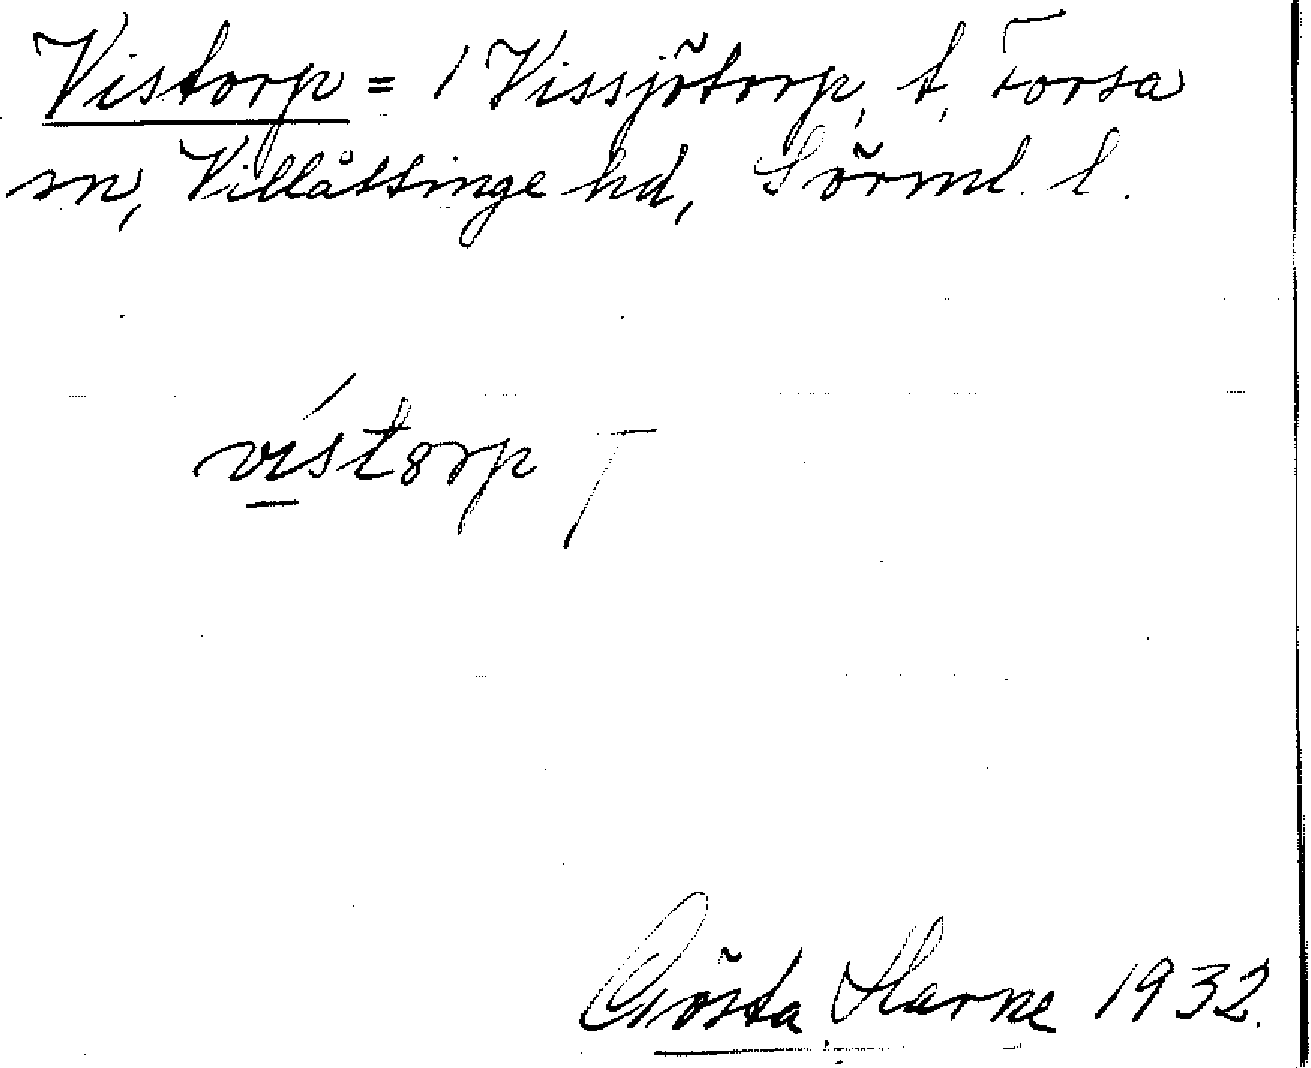 Vistorp = 1 Vissjötorp, t, Forsa
sn, Villåttinge hd, Sörml. l.
vistorp
Gösta 1932.